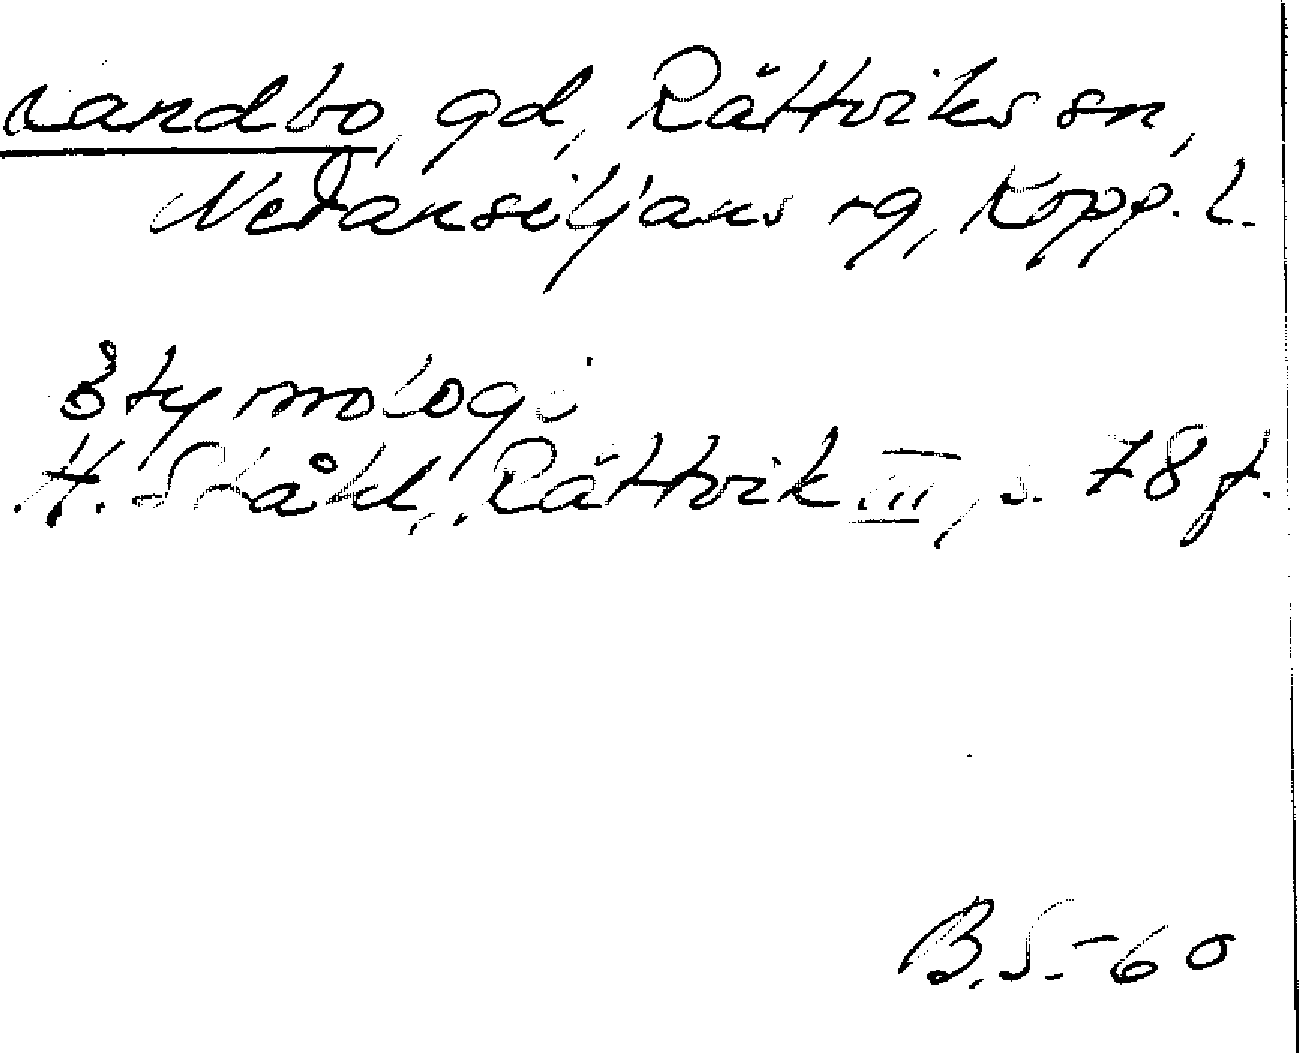 Landbo, gd, Rättviks sn,
Nedansiljans tg, Kopp. l.
Etymologi
H. Ståhl, Rättvik III, s. 78 f.
B.S.-60